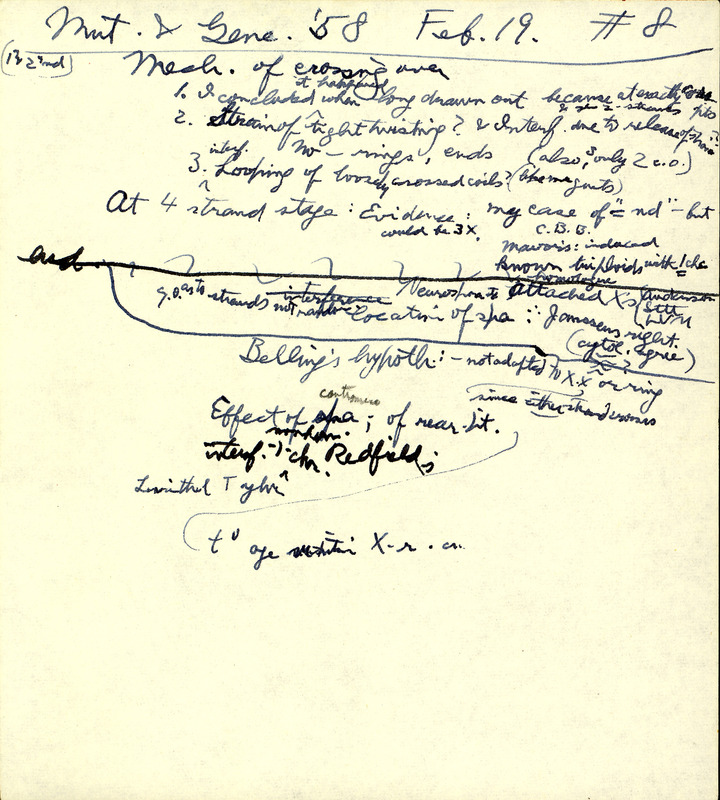 Mut. & Gene. '58 Feb. 19. # 8
(1 & 2nd)
Mech. of crossing over
it happened
1. I concluded when long drawn out because at exactly corresp. pts
& the 2 strands
2. Strain of tight twisting? & Interf. due to release of strain?
interf. No - rings, ends (also, only 2 c.o.)
3. Looping of loosely crossed coils? (like magnets)
At 4 strand stage: Evidence: my case of "nd" - but
could be 3X. C.B.B.
mavoris: induced
known triploids with 1 chr
and homologue
g.o. as to strands interference Neurospora Attached X's Anderson
not random location of spa: Janssens right.
(cytol. agree)
Belling's hypoth: - not adapted to X.X or ring
since either strand crosses
centromere
Effect of spa; of rear. lit.
nonhom.
interf. chr. Redfield;
Levinthal Taylor
t° age X-r.